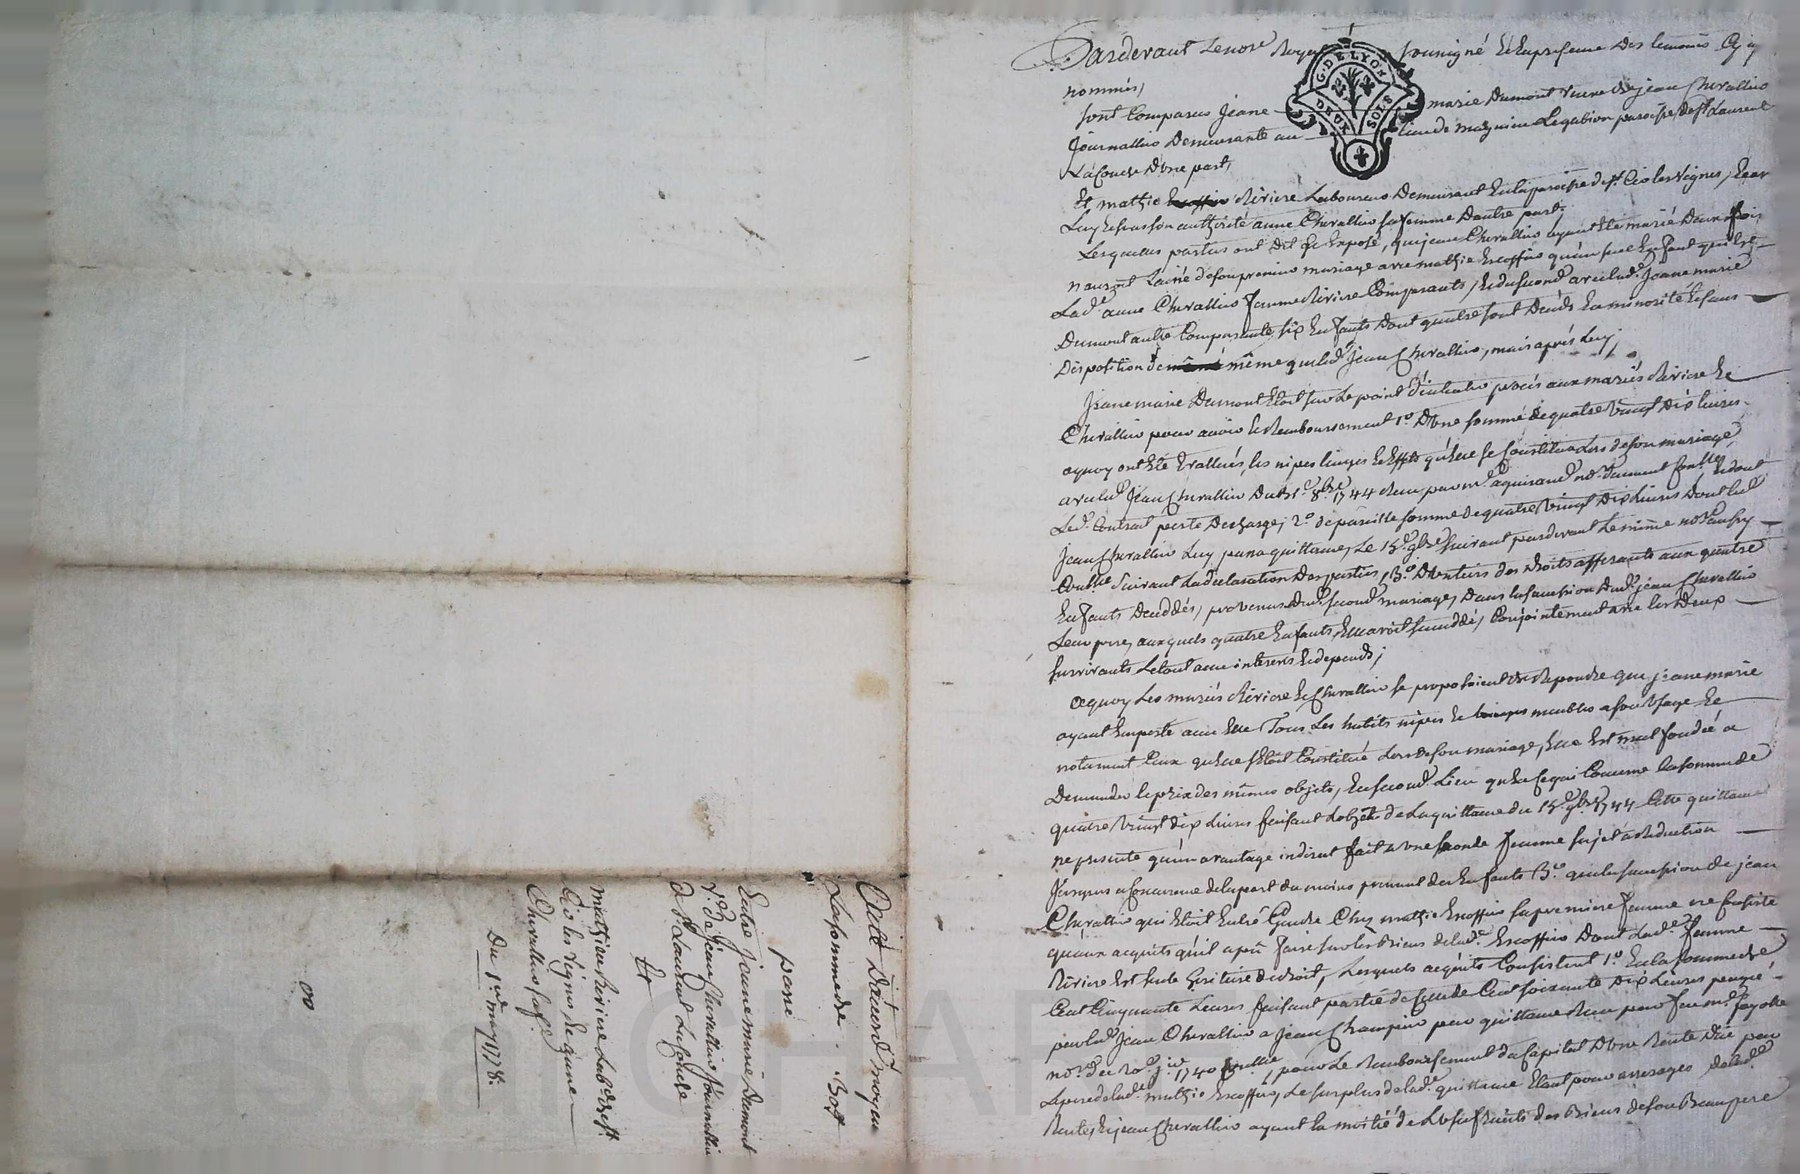 Pardevant Le nore Royal soussigné et en presence des temoins cy a
nommés,
sont comparus Jeane marie Dumont veuve de jean Chevallier
Journallier Demeurante au lieu de parroisse de st Laurent
La Conche d'une part,
Et mathie Riviere Laboureur Demeurant en la parroisse de st Cir les vignes, et de
Luy de son authorité anne Chevallier sa femme d'autre part;
Lesquelles parties ont dit et exposé, que jean Chevallier ayant été marié deux fois
n'auroit laissé de son premier mariage avec mathie Escoffier qu'un seul Enfant qui est
Lade anne Chevallier femme Riviere Comparants, et du second avec lade Jeane marie
Dumont autre Comparante, six Enfants dont quatre sont Decédés En minorité et sans
Disposition de même que led Jean Chevallier, mais après Luy;
Jeane marie Dumont Etoit sur Le point d'intenter procés aux mariés Riviere et
Chevallier pour avoir le Remboursement 1o D'une somme de quatre vingt Dix Livres
a quoy ont Eté Evallués les nipes linges et Effets qu'elle se Constitua Lors de son mariage
avec led Jean Chevallier 8bre 1744 Reçu par me nore dont
Led. Contrat porte Decharge; 2o de pareille somme de quatre vingt Dix Livres dont led
Jean Chevallier Luy passa quittance, Le 15e 9bre suivant pardevant Le même nore
suivant La declaration des parties, 3o D'entiers des droits afferants aux quatre
Enfants Decedés, provenus dud second mariage, Dans la succession dud jean Chevallier
Leur pere, auxquels quatre Enfants, Elle avoit succédé, Conjointement avec les Deux
survivants Le tout avec interets et depends;
a quoy Les mariés Riviere et Chevallier se proposoient de Repondre que jeane marie
ayant Emporté avec Elle Tous Les habits nipes et meubles a son Usage et
notament Ceux qu'elle s'etoit Constitué Lors de son mariage, Elle Est mal fondée a
Demander le prix des mêmes objets, En second Lieu qu'En ce qui Concerne la somme de
quatre vingt dix Livres faisant L'objet de La quittance du 15e 9bre 1744 Cette quittance
ne presente qu'un avantage indirect fait a Une seconde femme sujet a Reduction
Jusques a Concurrence de la part du moins prenant des Enfants 3o que la succession de jean
Chevallier qui Etoit Entré Gendre Chez mathie Escoffier sa premiere femme ne Consiste
qu'aux acquits qu'il a pû faire sur les Biens de lade Escoffier Dont Lade femme
Riviere Est seule heritiere de droit, Lesquels acquits Consistent 1o En la somme de
Cent Cinquante Livres faisant partie de celle de Cent soixante Dix Livres payée
par led Jean Chevallier a Jean Champier par quittance Reçue par feu me
nore du 20e 1740 pour Le Remboursement du Capital d'une Rente düe par
Le pere de lade mathie Escoffier, Le surplus de lade quittance Etant pour arrerages de lade
Rente, Et jean Chevallier ayant la moitié de L'Usufruits des Biens de son Beaupere
Acte d'accord moyen
La somme de 30#
passé
Entre jeane marie Dumont
ve de jean Chevallier journallier
de st Laurent La Conche
Et
mathieu Riviere Labr de st
Cir les vignes et anne
Chevallier sa fe
Du 1er may 1778.